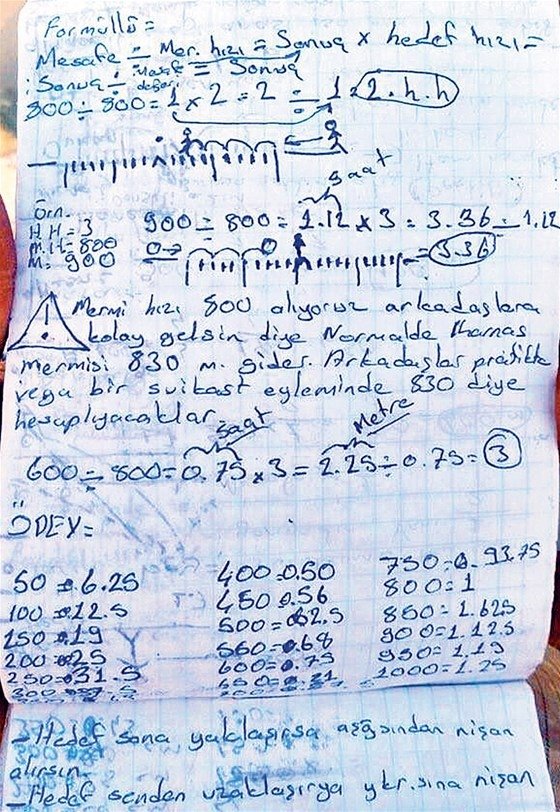 Formüllü =
Mesafe ÷ Mer. hızı = Sonuç x hedef hızı =
Sonuç ÷ Mesafe değeri = Sonuç
800 ÷ 800 = 1 x 2 = 2 ÷ 1 = 2.h.h
saat
Örn.
H H = 3
M.H = 800
M = 900
900 ÷ 800 = 1.12 x 3 = 3.36 ÷ 1.12
= 3.36
Mermi hızı 800 alıyoruz arkadaşlara
kolay gelsin diye Normalde
mermisi 830 m. gider. Arkadaşlar pratikte
veya bir suikast eyleminde 830 diye
hesaplıyacaklar
saat Metre
600 ÷ 800 = 0.75 x 3 = 2.25 ÷ 0.75 = 3
50 = 6.25
100 = 12.5
150 = 19
200 = 25
250 = 31.5
400 = 0.50
450 = 0.56
500 = 62.5
550 = 0.68
600 = 0.75
750 = 0.93.75
800 = 1
850 = 1.625
900 = 1.125
950 = 1.19
1000 = 1.25
- Hedef sana yaklaşırsa aşğsından nişan
alırsın.
- Hedef senden uzaklaşırya ykr.sına nişan